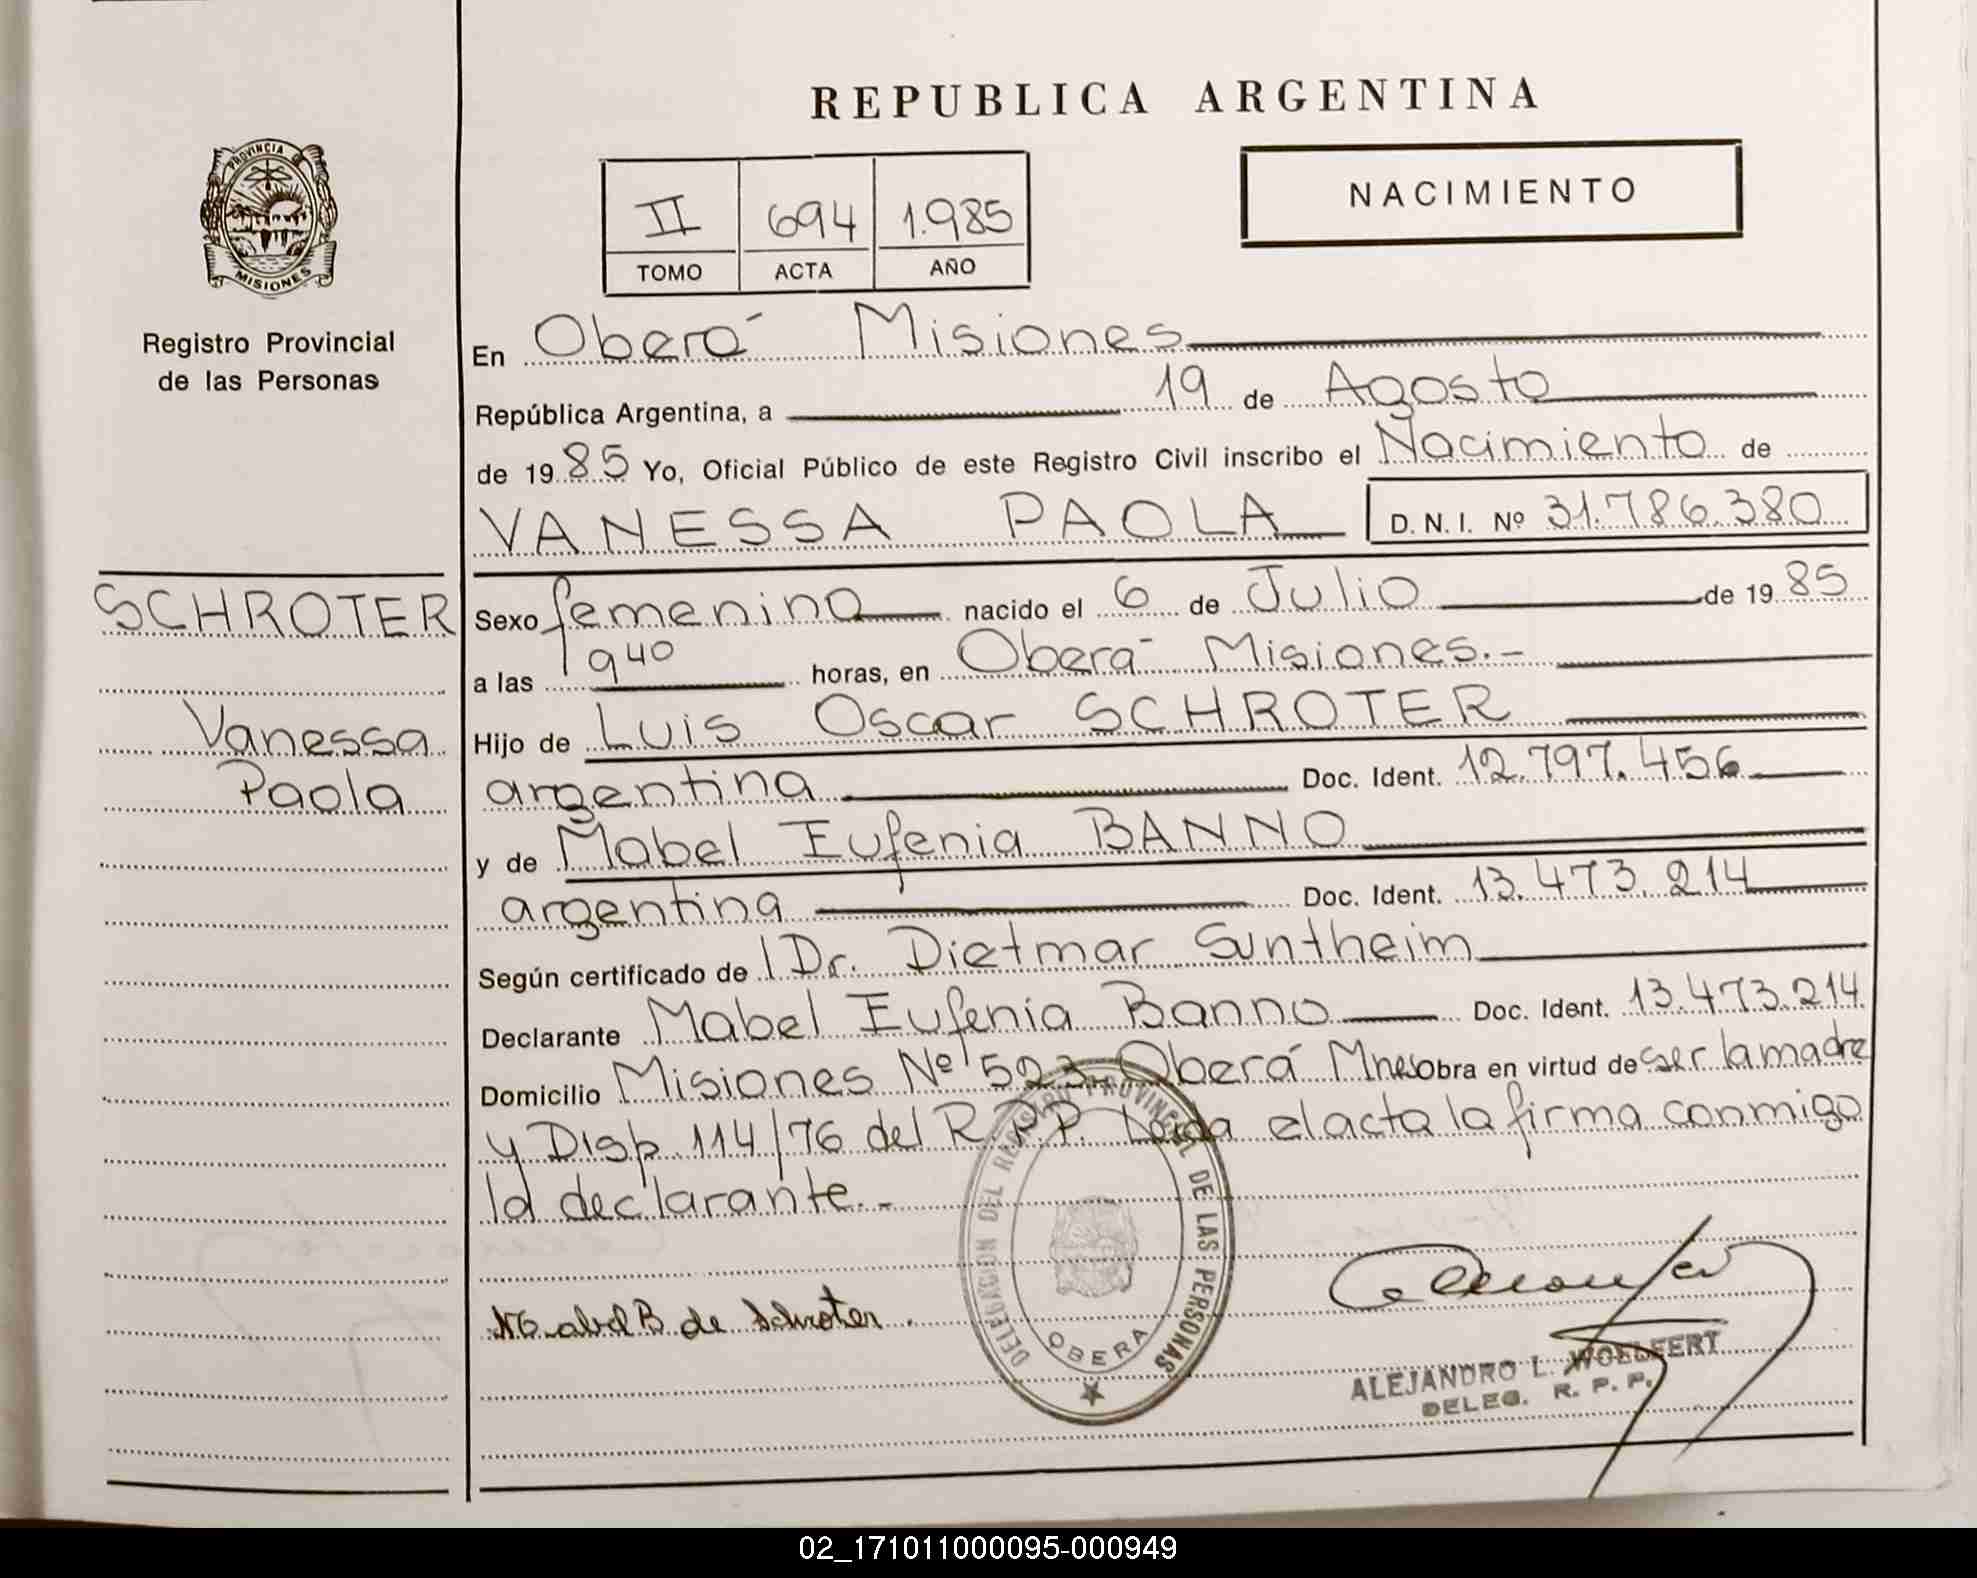 REPUBLICA ARGENTINA
PROVINCIA
MISIONES
Registro Provincial
de las Personas
II 694 1.985
TOMO ACTA AÑO
NACIMIENTO
En Oberá Misiones
República Argentina, a 19 de Agosto
de 1985 Yo, Oficial Público de este Registro Civil inscribo el Nacimiento de
VANESSA PAOLA D.N.I. Nº 31.786.380
SCHROTER
Vanessa
Paola
Sexo femenino nacido el 6 de Julio de 1985
a las 9 40 horas, en Oberá Misiones.-
Hijo de Luis Oscar SCHROTER
argentina Doc. Ident. 12.797.456
y de Mabel Eufenia BANNO
argentina Doc. Ident. 13.473.214
Según certificado de Dr. Dietmar Suntheim
Declarante Mabel Eufenia Banno Doc. Ident. 13.473.214
Domicilio Misiones Nº 523 Oberá Mnes Obra en virtud de ser la madre
y Disp. 114/76 del R.P.P. Leida el acta la firma conmigo
la declarante.-
DELEGACION DEL REGISTRO PROVINCIAL DE LAS PERSONAS
OBERA
Mabel B de Schroter.
ALEJANDRO L. WOELFERT
DELEG. R. P. P.
02_171011000095-000949